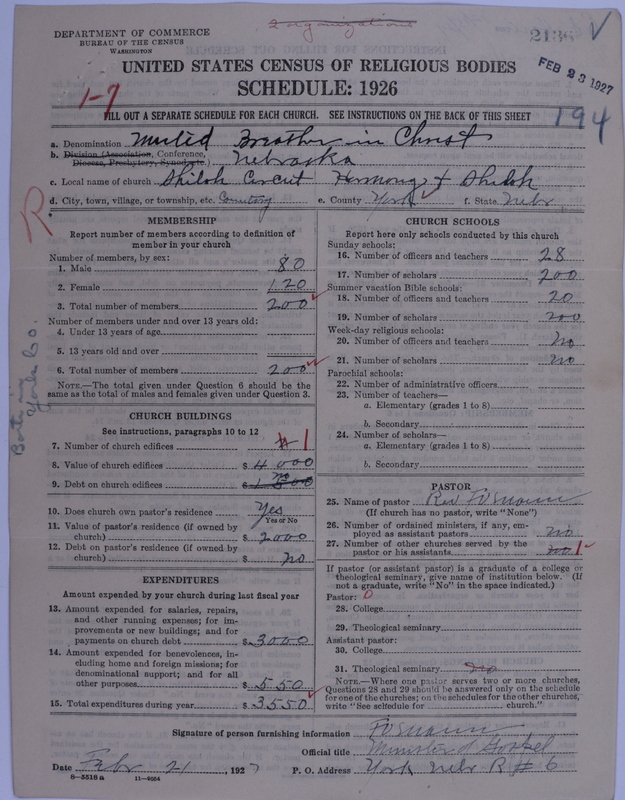 2 organizations
2136
DEPARTMENT OF COMMERCE
BUREAU OF THE CENSUS
WASHINGTON
FEB 23 1927
UNITED STATES CENSUS OF RELIGIOUS BODIES
SCHEDULE: 1926
1-7
FILL OUT A SEPARATE SCHEDULE FOR EACH CHURCH. SEE INSTRUCTIONS ON THE BACK OF THIS SHEET
194
a. Denomination Breathren in Christ
b. Division (Association, Conference, Diocese, Presbytery, Synod, etc.) Nebraska
c. Local name of church Shiloh Circut Harmony & Shiloh
d. City, town, village, or township, etc. Country e. County York f. State Nebr
R
Both in York Co.
MEMBERSHIP
Report number of members according to definition of member in your church
Number of members, by sex:
1. Male 80
2. Female 120
3. Total number of members 200
Number of members under and over 13 years old:
4. Under 13 years of age
5. 13 years old and over
6. Total number of members 200
NOTE.—The total given under Question 6 should be the same as the total of males and females given under Question 3.
CHURCH BUILDINGS
See instructions, paragraphs 10 to 12
7. Number of church edifices 1
8. Value of church edifices $ 4000
9. Debt on church edifices $ 1500 no
10. Does church own pastor's residence Yes
Yes or No
11. Value of pastor's residence (if owned by church) $ 2000
12. Debt on pastor's residence (if owned by church) $ no
EXPENDITURES
Amount expended by your church during last fiscal year
13. Amount expended for salaries, repairs, and other running expenses; for improvements or new buildings; and for payments on church debt $ 3000
14. Amount expended for benevolences, including home and foreign missions; for denominational support; and for all other purposes $ 550
15. Total expenditures during year $ 3550
CHURCH SCHOOLS
Report here only schools conducted by this church
Sunday schools:
16. Number of officers and teachers 28
17. Number of scholars 200
Summer vacation Bible schools:
18. Number of officers and teachers 20
19. Number of scholars 200
Week-day religious schools:
20. Number of officers and teachers no
21. Number of scholars no
Parochial schools:
22. Number of administrative officers
23. Number of teachers—
a. Elementary (grades 1 to 8)
b. Secondary
24. Number of scholars—
a. Elementary (grades 1 to 8)
b. Secondary
PASTOR
25. Name of pastor Rev
(If church has no pastor, write "None")
26. Number of ordained ministers, if any, employed as assistant pastors no
27. Number of other churches served by the pastor or his assistants no 1
If pastor (or assistant pastor) is a graduate of a college or theological seminary, give name of institution below. (If not a graduate, write "No" in the space indicated.)
Pastor: 0
28. College
29. Theological seminary
Assistant pastor:
30. College
31. Theological seminary no
NOTE.—Where one pastor serves two or more churches, Questions 28 and 29 should be answered only on the schedule for one of the churches; on the schedules for the other churches, write "See schedule for church."
Signature of person furnishing information
Official title Minister of Gospel
Date Febr 21, 1927 P. O. Address York Nebr R # 6
8—5518 a 11—9554